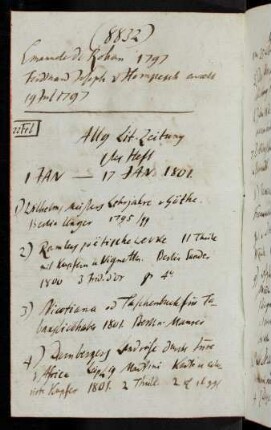 (8832)
Emanuel de Rohan 1797
Ferdinand Joseph v Hompesch erw
19 Jul 1797
22 Feb
Allg Lit. Zeitung
1tes Heft
1 JAN — 17 JAN. 1801.
1) Wilhelm Meisters Lehrjahre v Göthe
Berlin Unger 1795/
2) Ramlers poëtische Werke II Theile
mit Kupfern u Vignetten. Berlin Sander
1800 3 frd.d'or gr 4°
3) Nicotiana od Taschenbuch für Ta-
baksliebhaber 1801. Berlin
4) Dambergers Landreise durch
Africa Leipzig Martini
Kupfer 1801. 2 Theile